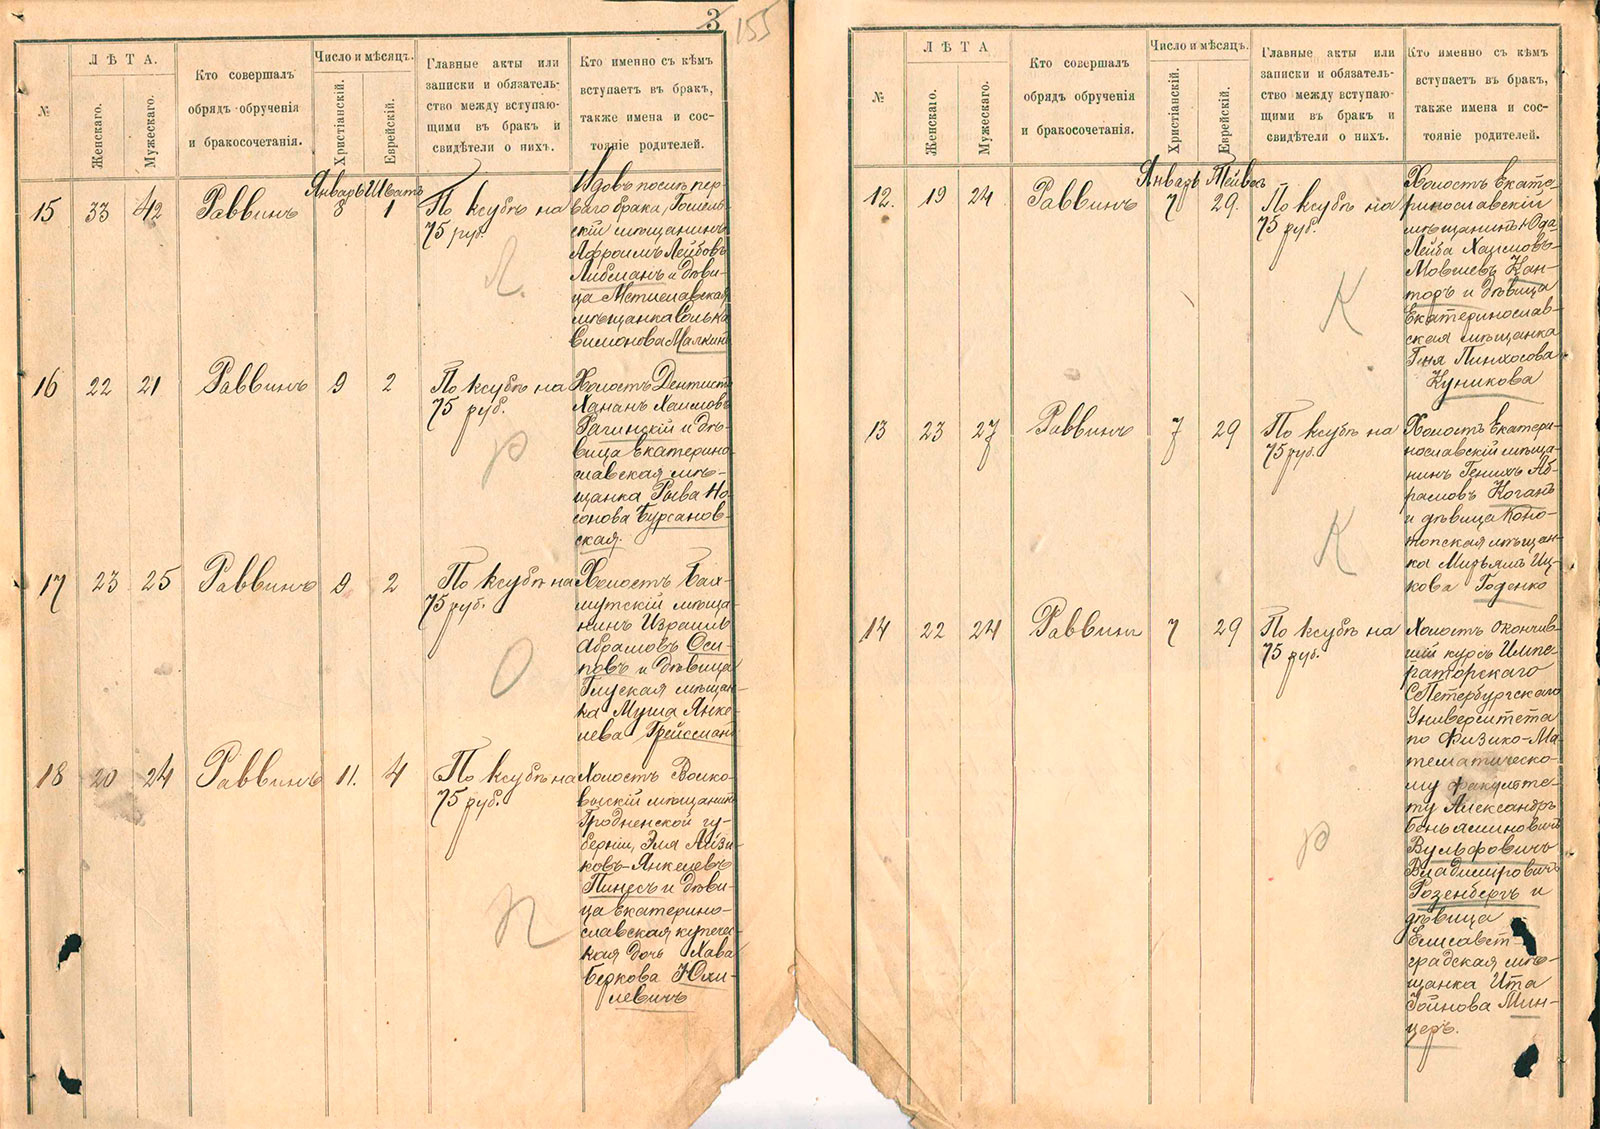 3
155
№
ЛѢТА.
Женскаго.
Мужескаго.
Кто совершалъ
обрядъ обрученія
и бракосочетанія.
Число и мѣсяцъ.
Христіанскій.
Еврейскій.
Главные акты или
записки и обязатель-
ство между вступаю-
щими въ бракъ и
свидѣтели о нихъ.
Кто именно съ кѣмъ
вступаетъ въ бракъ,
также имена и сос-
тояніе родителей.
Январь Шватъ
15 33 42 Раввинъ 8 1
По ксубѣ на
75 руб.
Л.
Вдовъ послѣ пер-
ваго брака, Гомель-
скій мѣщанинъ
Афроимъ Лейбовъ
Либманъ и дѣви-
ца Мстиславская
мѣщанка Солька
Симонова Малкина
16 22 21 Раввинъ 9 2
По ксубѣ на
75 руб.
Р
Холостъ Дентистъ
Хананъ Хаимовъ
Рагинскій и дѣ-
вица Екатерино-
славская мѣ-
щанка Рыва Но-
сонова Бурсанов-
ская.
17 23 25 Раввинъ 9 2
По ксубѣ на
75 руб.
О
Холостъ Бах-
мутскій мѣща-
нинъ Израиль
Абрамовъ Оси-
повъ и дѣвица
Глуская мѣщан-
ка Муша Янке-
лева Грейсманъ
18 20 24 Раввинъ 11. 4
По ксубѣ на
75 руб.
П
Холостъ Волко-
выскій мѣщанинъ
Гродненской гу-
берніи, Эля Айзи-
ковъ-Янкелевъ
Пинесъ и дѣви-
ца Екатерино-
славская купечес-
кая дочь Хава
Беркова Юди-
левичъ
№
ЛѢТА
Женскаго.
Мужескаго.
Кто совершалъ
обрядъ обрученія
и бракосочетанія.
Число и мѣсяцъ.
Христіанскій.
Еврейскій.
Главные акты или
записки и обязатель-
ство между вступаю-
щими въ бракъ и
свидѣтели о нихъ.
Кто именно съ кѣмъ
вступаетъ въ бракъ,
также имена и сос-
тояніе родителей.
Январь Тейвесъ
12. 19 24 Раввинъ 7 29.
По ксубѣ на
75 руб.
К
Холостъ Екате-
ринославскій
мѣщанинъ Юда
Лейба Хаимовъ-
Мовшевъ Кан-
торъ и дѣвица
Екатеринослав-
ская мѣщанка
Геня Пинхосова
Куникова
13 23 27 Раввинъ 7 29
По ксубѣ на
75 руб.
К
Холостъ Екатери-
нославскій мѣща-
нинъ Генихъ Аб-
рамовъ Коганъ
и дѣвица Коно-
топская мѣщан-
ка Мирьямъ Иц-
кова Годенко
14 22 24 Раввинъ 7 29
По ксубѣ на
75 руб.
Р
Холостъ окончив-
шій курсъ Импе-
раторскаго
СПетербургскаго
Университета
по Физико-Ма-
тематическо-
му факульте-
ту Александръ
Беньяминовичъ
Вульфовичъ
Владиміровичъ
Розенбергъ и
дѣвица
Елисавет-
градская мѣ-
щанка Ита
Гойнова Мин-
церъ.